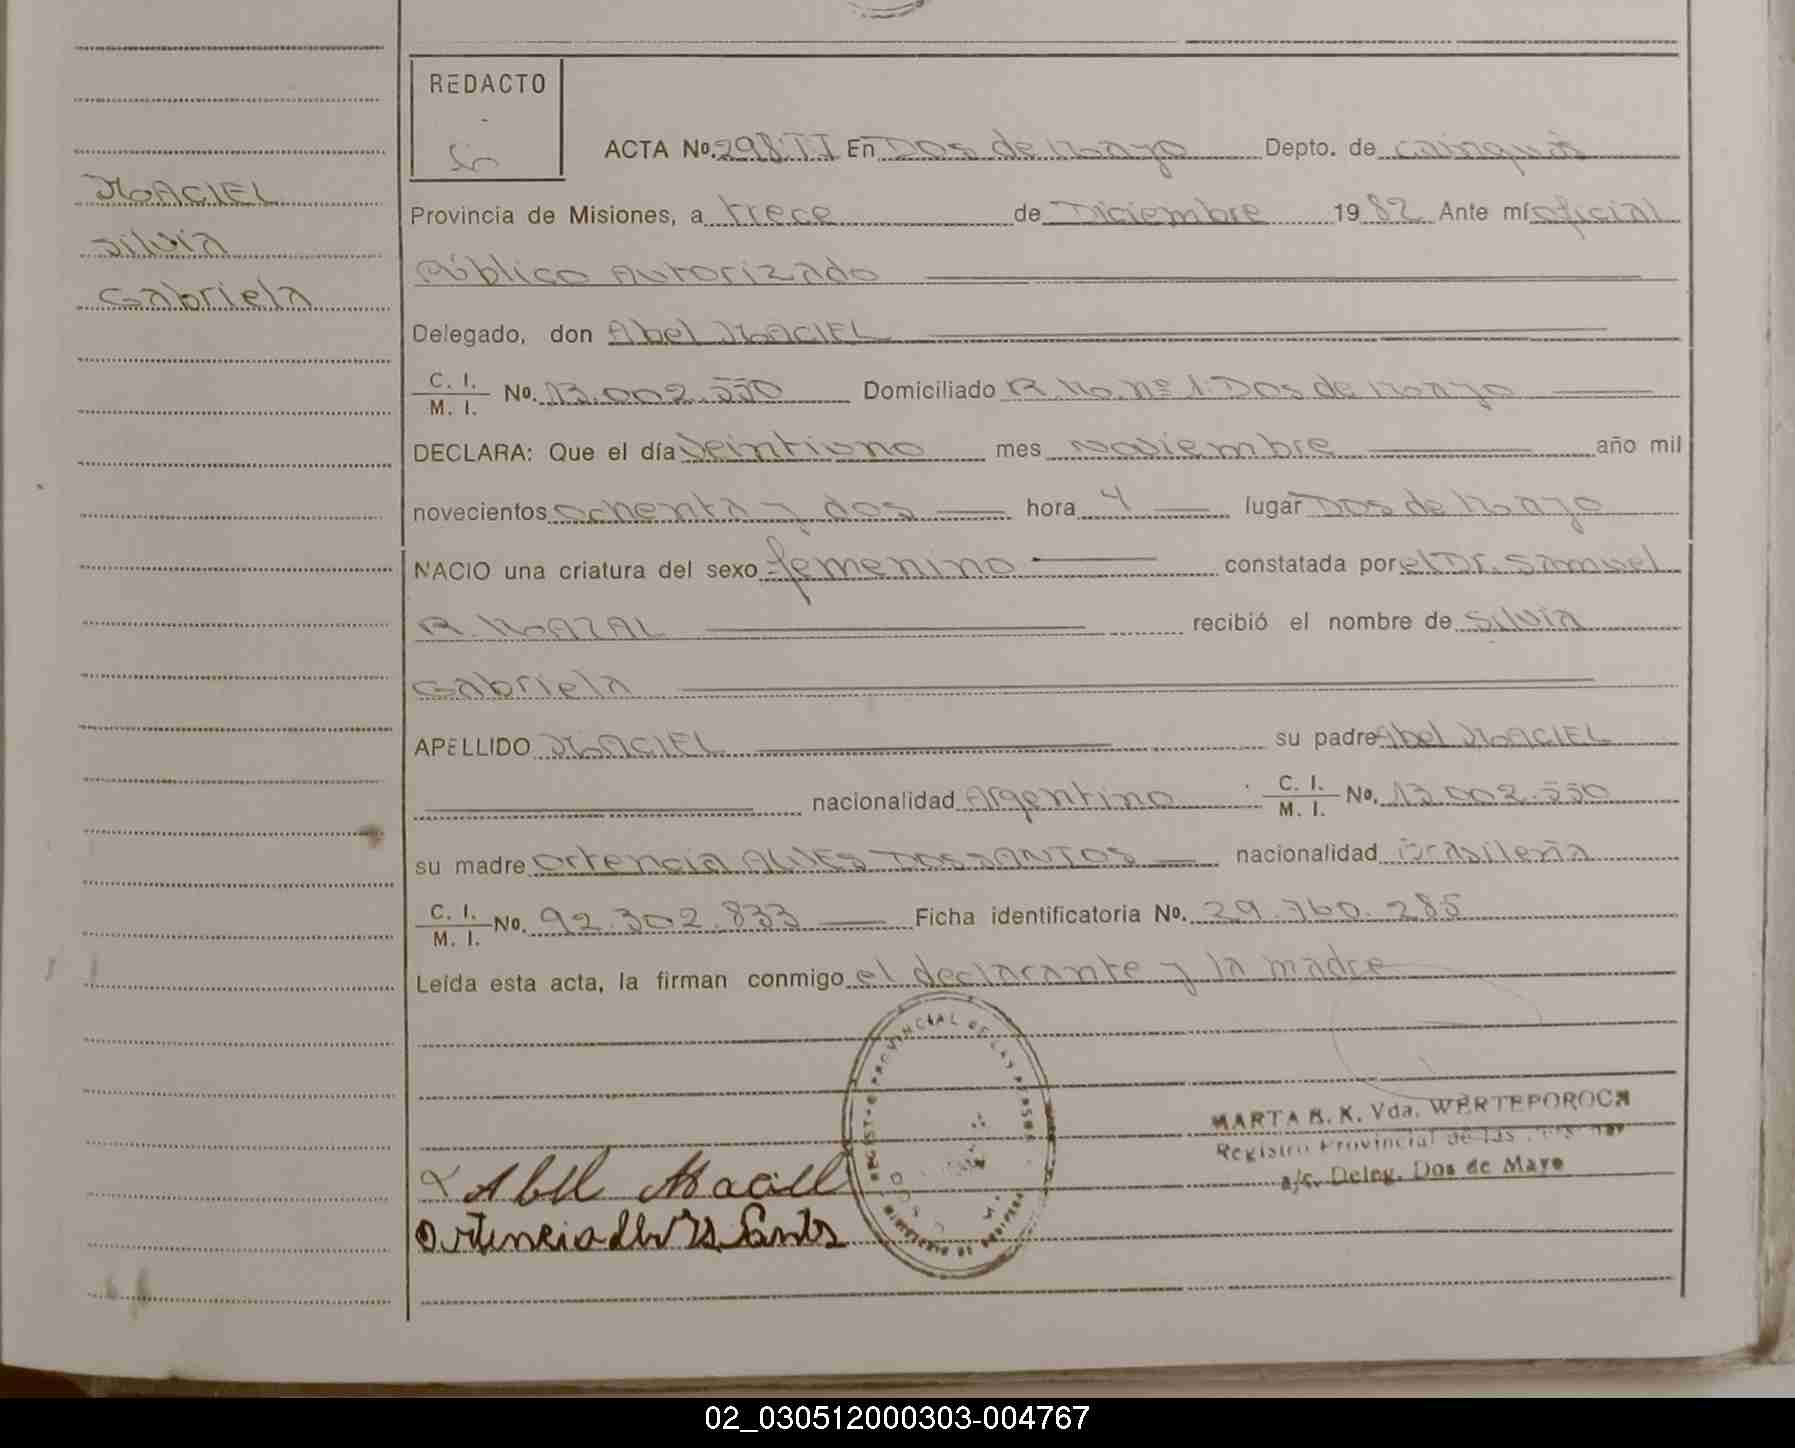 REDACTO
ACTA No. 298 TI En Dos de Mayo Depto. de Cainguás
MACIEL
Provincia de Misiones, a trece de Diciembre 1982 Ante mí oficial
Silvia
Público Autorizado
Gabriela
Delegado, don Abel MACIEL
C. I.
M. I. No. 13.002.550 Domiciliado R. Mo. Nº 1. Dos de Mayo
DECLARA: Que el día Veintiuno mes Noviembre año mil
novecientos ochenta y dos hora 4 lugar Dos de Mayo
NACIO una criatura del sexo femenino constatada por el Dr. Samuel
R. MAZAL recibió el nombre de Silvia
Gabriela
APELLIDO MACIEL su padre Abel MACIEL
nacionalidad Argentino C. I.
M. I. No. 13.002.550
su madre Ortencia ALVES DOS SANTOS nacionalidad Brasileña
C. I.
M. I. No. 92.302.833 Ficha identificatoria No. 29.760.285
Leída esta acta, la firman conmigo el declarante y la madre
MARTA B. K. Vda. WERTEPOROCH
Registro Provincial de las
a/c. Deleg. Dos de Mayo
Abel Maciel
02_030512000303-004767